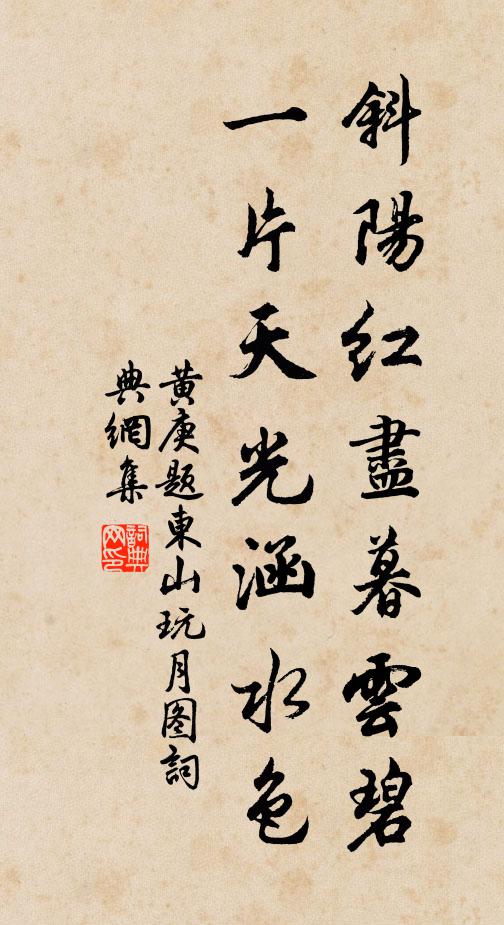 斜陽紅盡暮雲碧
一片天光涵水色
黃庚題東山玩月图詞
典網集
詞典网印